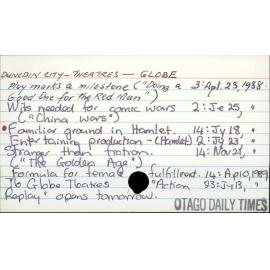 DUNEDIN CITY - THEATRES - GLOBE
Play marks a milestone ("Doing a 3: Apl. 23, 1988.
Good One for the Red Man")
Wits needed for comic wars 2: Je 25, "
("China Wars")
Familiar ground in Hamlet. 14: Jy 18, "
Entertaining production - (Hamlet) 2: Jy 23, "
Stranger than fiction. 14: Nov 21, "
("The Golden Age")
Formula for female fulfilment. 14: Ap 10, 1989
Globe Theatres "Action 23: Jy 13, "
Replay" opens tomorrow.
OTAGO DAILY TIMES